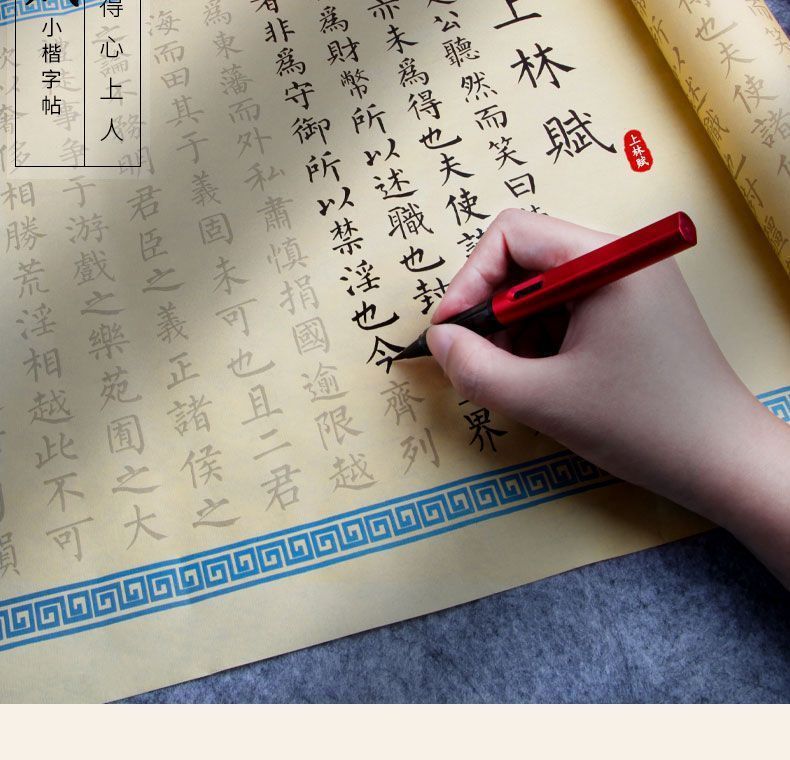 得心上人
小楷字帖
上林賦
上林賦
公聽然而笑曰
亦未爲得也夫使諸
爲財幣所以述職也封
界
者非爲守御所以禁淫也今齊列
爲東藩而外私肅慎捐國逾限越
海而田其于義固未可也且二君
論不務明君臣之義正諸侯之
徒事爭于游戲之樂苑囿之大
欲以奢侈相勝荒淫相越此不可
得也夫使諸
所以述職也封疆